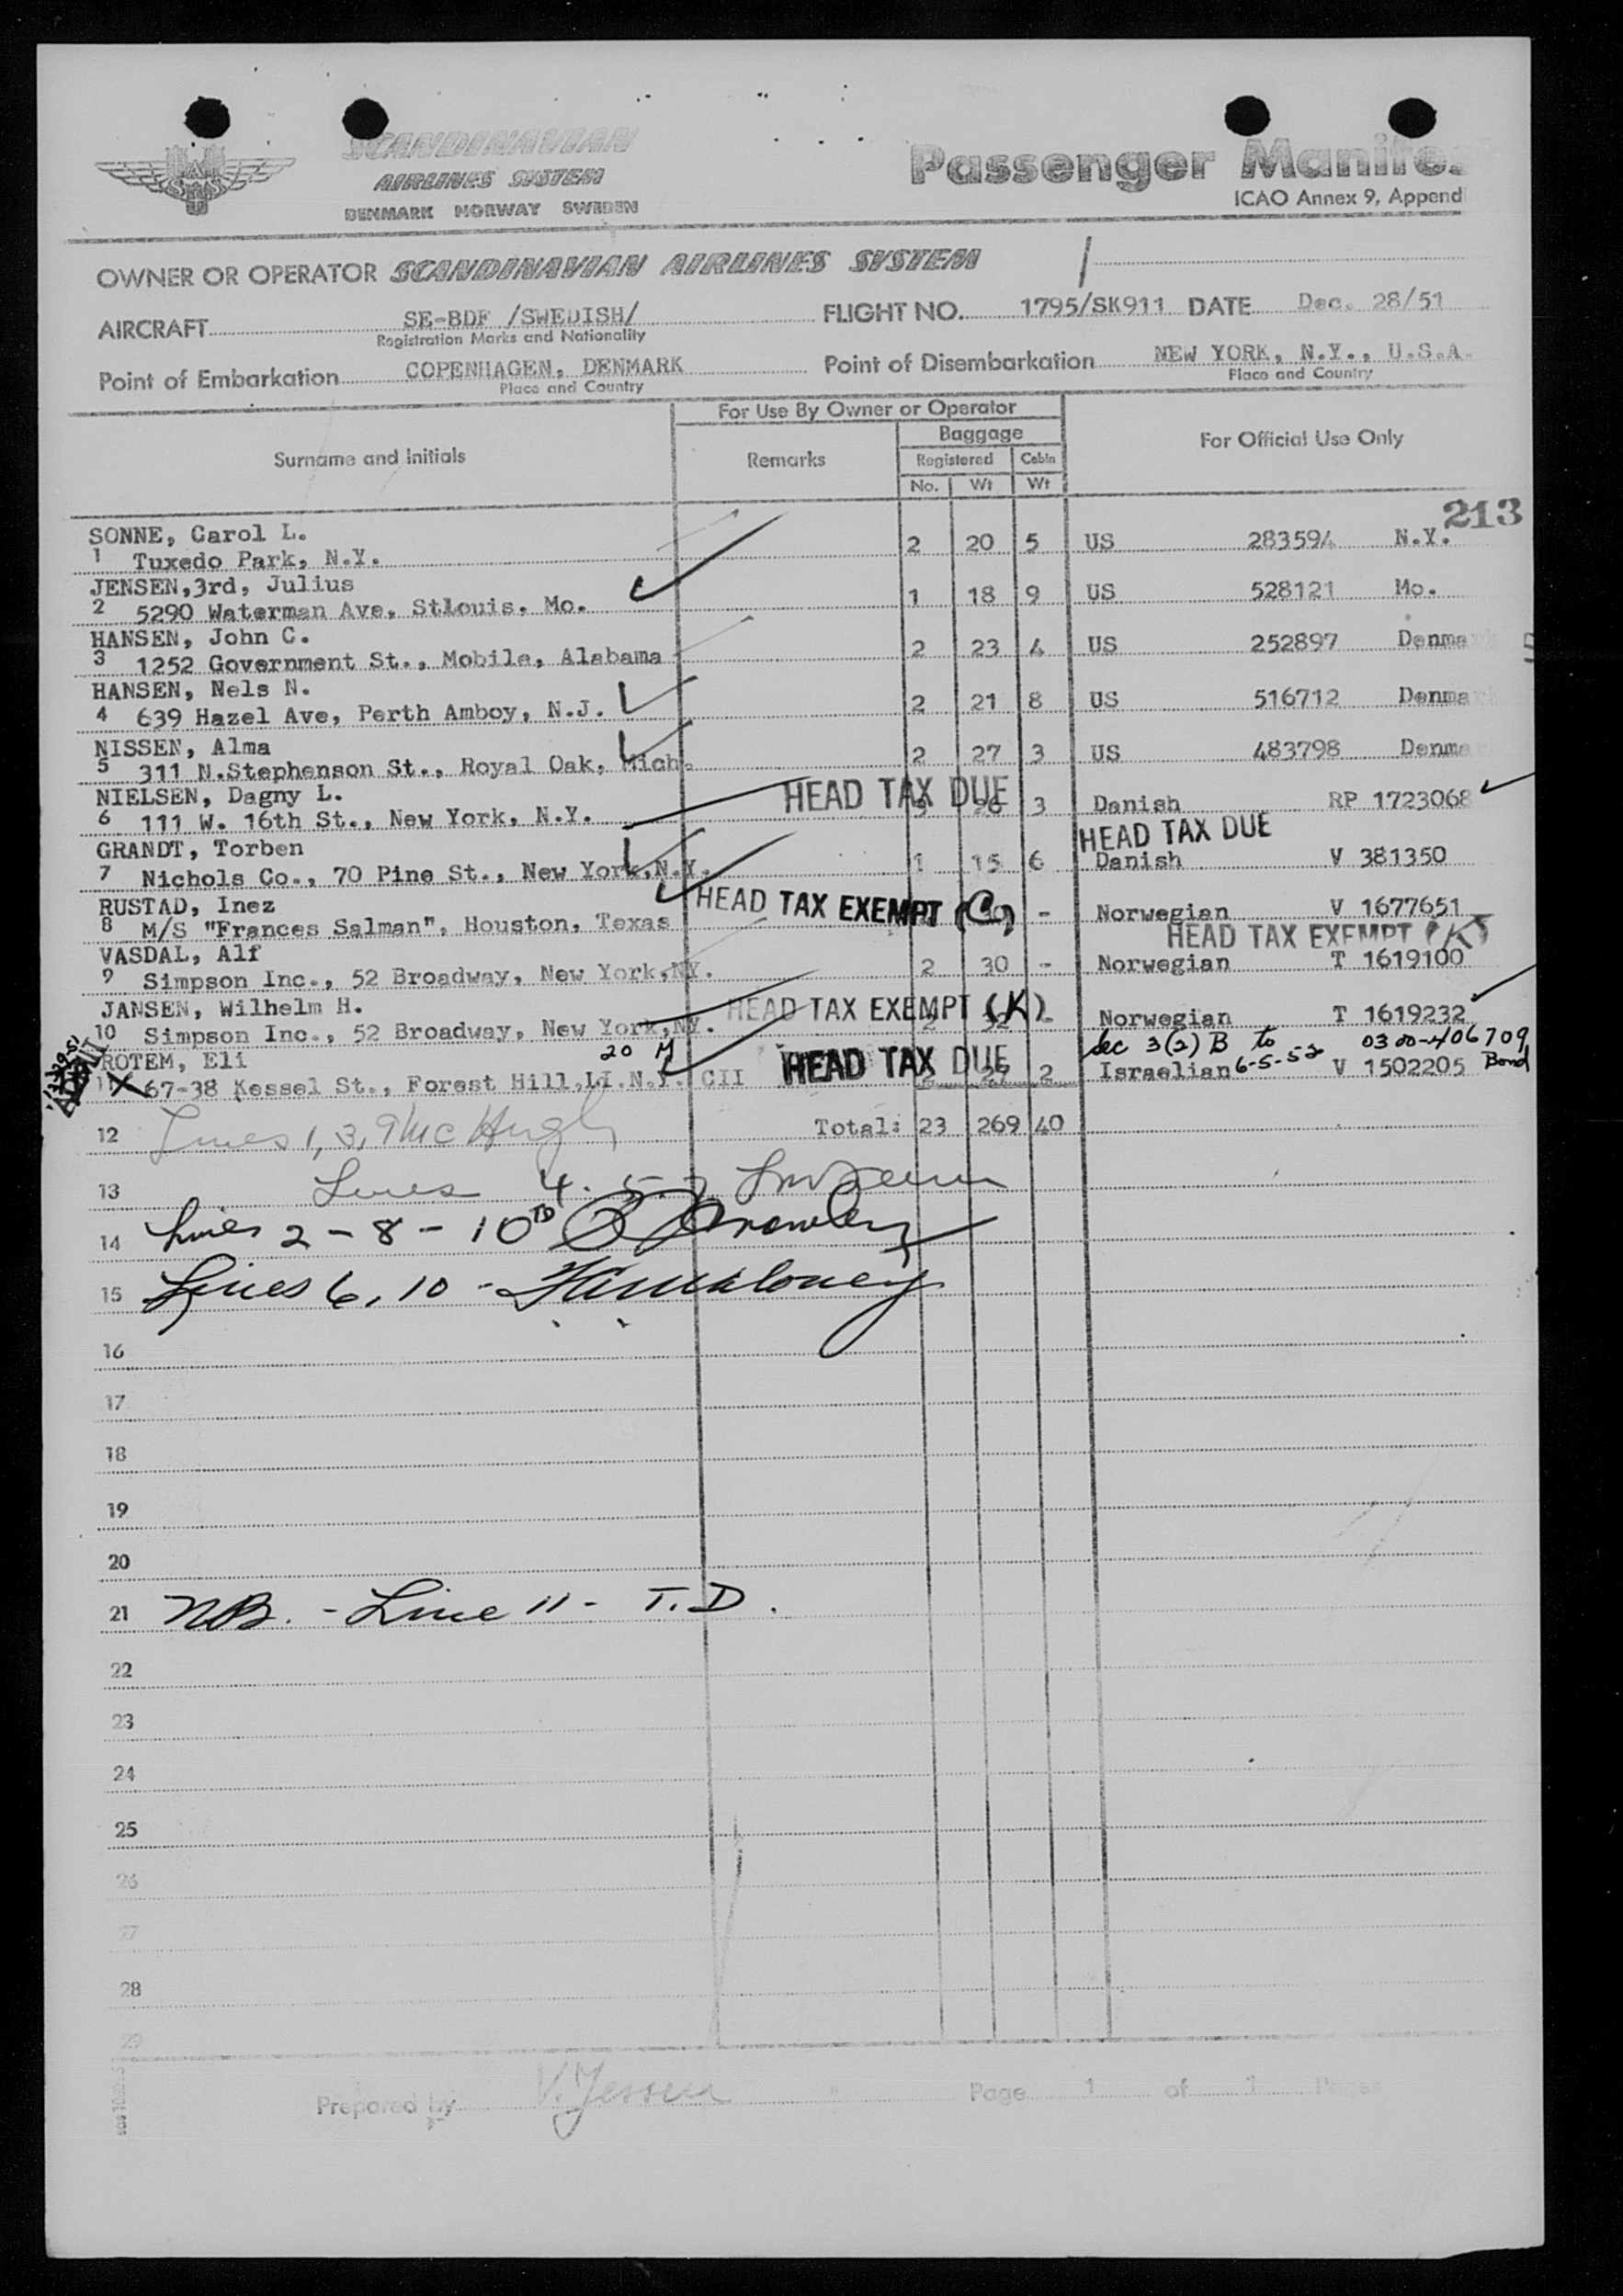 SCANDINAVIAN
AIRLINES SYSTEM
DENMARK NORWAY SWEDEN
SAS
Passenger Manifes
ICAO Annex 9, Appendi
OWNER OR OPERATOR SCANDINAVIAN AIRLINES SYSTEM
AIRCRAFT SE-BDF /SWEDISH/ FLIGHT NO. 1795/SK911 DATE Dec. 28/51
Registration Marks and Nationality
Point of Embarkation COPENHAGEN, DENMARK Point of Disembarkation NEW YORK, N.Y., U.S.A.
Place and Country Place and Country
For Use By Owner or Operator
Surname and Initials Remarks Baggage For Official Use Only
Registered Cabin
No. Wt Wt
213
SONNE, Carol L.
1 Tuxedo Park, N.Y. 2 20 5 US 283594 N.Y.
JENSEN,3rd, Julius
2 5290 Waterman Ave, Stlouis, Mo. 1 18 9 US 528121 Mo.
HANSEN, John C.
3 1252 Government St., Mobile, Alabama 2 23 4 US 252897 Denmark
HANSEN, Nels N.
4 639 Hazel Ave, Perth Amboy, N.J. 2 21 8 US 516712 Denmark
NISSEN, Alma
5 311 N.Stephenson St., Royal Oak, Mich. 2 27 3 US 483798 Denma
NIELSEN, Dagny L. HEAD TAX DUE
6 111 W. 16th St., New York, N.Y. 3 Danish RP 1723068
GRANDT, Torben HEAD TAX DUE
7 Nichols Co., 70 Pine St., New York,N.Y. 1 15 6 Danish V 381350
RUSTAD, Inez HEAD TAX EXEMPT (C)
8 M/S "Frances Salman", Houston, Texas - Norwegian V 1677651
VASDAL, Alf HEAD TAX EXEMPT (K)
9 Simpson Inc., 52 Broadway, New York,NY. 2 30 - Norwegian T 1619100
JANSEN, Wilhelm H. HEAD TAX EXEMPT (K)
10 Simpson Inc., 52 Broadway, New York,NY. 2 32 - Norwegian T 1619232
Sec 3(2) B to 0300-406709
ROTEM, Eli 20 M HEAD TAX DUE 6-5-52 Bond
11 X 67-38 Kessel St., Forest Hill,LI.N.Y. CII 27 2 Israelian V 1502205
12 Lines 1, 3, 9 McHugh Total: 23 269 40
13 Lines 4. 5. 7
14 Lines 2 - 8 - 10 TD
15 Lines 6, 10 - Maloney
16
17
18
19
20
21 NB. - Line 11 - T.D.
22
23
24
25
26
27
28
29
Prepared by V. Jessen Page 1 of 1 Pages